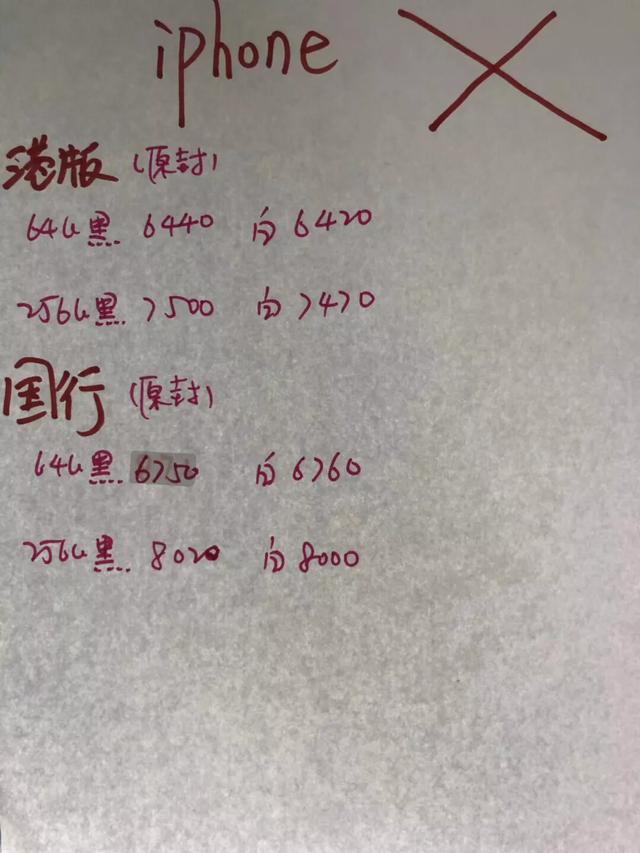 iphone X
港版(原封)
64G黑 6440 白6420
256G黑 7500 白7470
国行(原封)
64G黑 6750 白6760
256G黑 8020 白8000